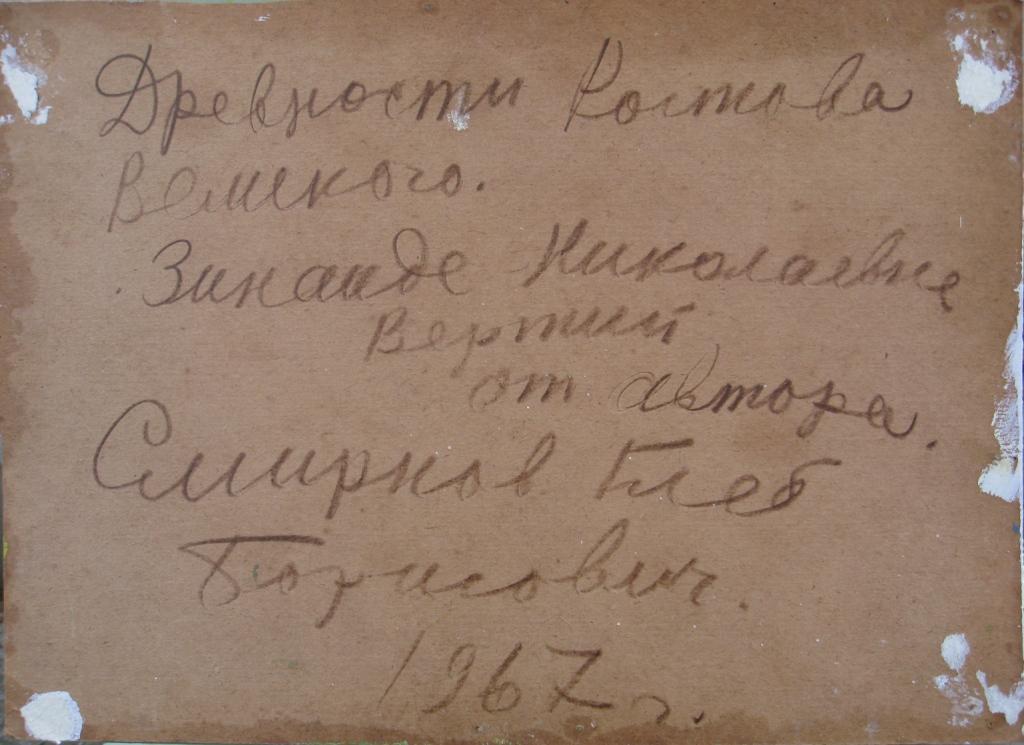 Древности Ростова
Великого.
Зинаиде Николаевне
от автора.
Смирнов Глеб
Борисович.
1967 г.